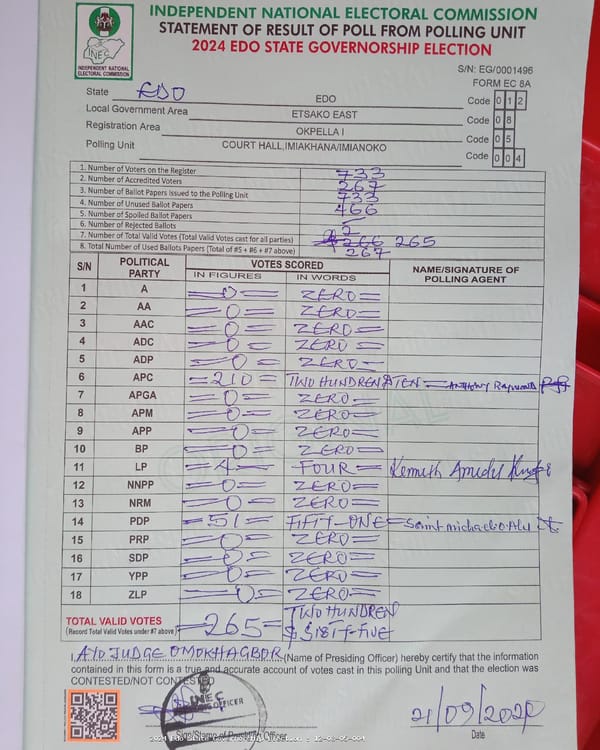 INDEPENDENT NATIONAL ELECTORAL COMMISSION
STATEMENT OF RESULT OF POLL FROM POLLING UNIT
2024 EDO STATE GOVERNORSHIP ELECTION
INEC
INDEPENDENT NATIONAL ELECTORAL COMMISSION
S/N: EG/0001496
FORM EC 8A
State EDO EDO Code 0 1 2
Local Government Area ETSAKO EAST Code 0 8
Registration Area OKPELLA I Code 0 5
Polling Unit COURT HALL,IMIAKHANA/IMIANOKO Code 0 0 4
1. Number of Voters on the Register 733
2. Number of Accredited Voters 267
3. Number of Ballot Papers Issued to the Polling Unit 733
4. Number of Unused Ballot Papers 466
5. Number of Spoiled Ballot Papers
6. Number of Rejected Ballots 2
7. Number of Total Valid Votes (Total Valid Votes cast for all parties) 266 265
8. Total Number of Used Ballots Papers (Total of #5 + #6 + #7 above) 267
S/N POLITICAL PARTY VOTES SCORED NAME/SIGNATURE OF POLLING AGENT
IN FIGURES IN WORDS
1 A =0= ZERO=
2 AA =0= ZERO=
3 AAC =0= ZERO=
4 ADC =0= ZERO=
5 ADP =0= ZERO=
6 APC =210= TWO HUNDREN & TEN =
7 APGA =0= ZERO=
8 APM =0= ZERO=
9 APP =0= ZERO=
10 BP =0= ZERO=
11 LP =4= FOUR=
12 NNPP =0= ZERO=
13 NRM =0= ZERO=
14 PDP =51= FIFTY-ONE=
15 PRP =0= ZERO=
16 SDP =0= ZERO=
17 YPP =0= ZERO=
18 ZLP =0= ZERO=
TOTAL VALID VOTES =265= TWO HUNDREN
(Record Total Valid Votes under #7 above) & SIXTY-FIVE
I, AYO JUDGE OMOKHAGBOR (Name of Presiding Officer) hereby certify that the information
contained in this form is a true and accurate account of votes cast in this polling Unit and that the election was
CONTESTED/NOT CONTESTED
INEC
OFFICER
Sign/Stamp of Presiding Officer
21/09/2024
Date